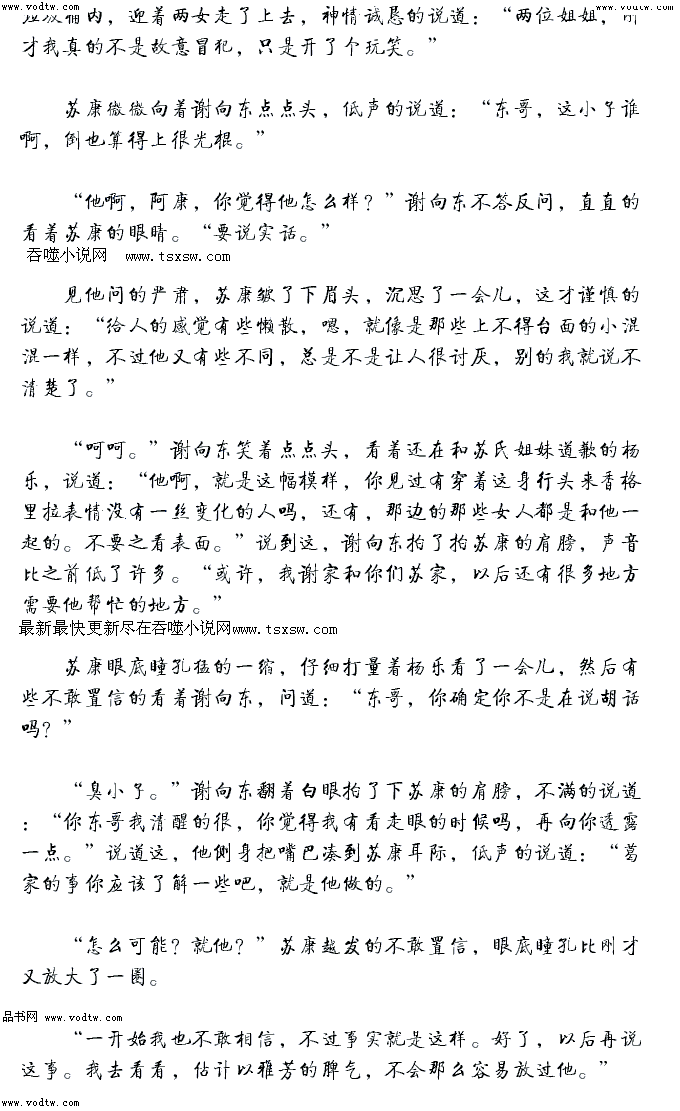 www.vodtw.com www.vodtw.com
圾桶内，迎着两女走了上去，神情诚恳的说道：“两位姐姐，刚
才我真的不是故意冒犯，只是开了个玩笑。”
苏康微微向着谢向东点点头，低声的说道：“东哥，这小子谁
啊，倒也算得上很光棍。”
“他啊，阿康，你觉得他怎么样？”谢向东不答反问，直直的
看着苏康的眼睛。“要说实话。”
吞噬小说网 www.tsxsw.com
见他问的严肃，苏康皱了下眉头，沉思了一会儿，这才谨慎的
说道：“给人的感觉有些懒散，嗯，就像是那些上不得台面的小混
混一样，不过他又有些不同，总是不是让人很讨厌，别的我就说不
清楚了。”
“呵呵。”谢向东笑着点点头，看着还在和苏氏姐妹道歉的杨
乐，说道：“他啊，就是这幅模样，你见过有穿着这身行头来香格
里拉表情没有一丝变化的人吗，还有，那边的那些女人都是和他一
起的。不要之看表面。”说到这，谢向东拍了拍苏康的肩膀，声音
比之前低了许多。“或许，我谢家和你们苏家，以后还有很多地方
需要他帮忙的地方。”
最新最快更新尽在吞噬小说网www.tsxsw.com
苏康眼底瞳孔猛的一缩，仔细打量着杨乐看了一会儿，然后有
些不敢置信的看着谢向东，问道：“东哥，你确定你不是在说胡话
吗？”
“臭小子。”谢向东翻着白眼拍了下苏康的肩膀，不满的说道
：“你东哥我清醒的很，你觉得我有看走眼的时候吗，再向你透露
一点。”说道这，他侧身把嘴巴凑到苏康耳际，低声的说道：“葛
家的事你应该了解一些吧，就是他做的。”
“怎么可能？就他？”苏康越发的不敢置信，眼底瞳孔比刚才
又放大了一圈。
品书网 www.vodtw.com
“一开始我也不敢相信，不过事实就是这样。好了，以后再说
这事。我去看看，估计以雅芳的脾气，不会那么容易放过他。”
www.vodtw.com www.vodtw.com